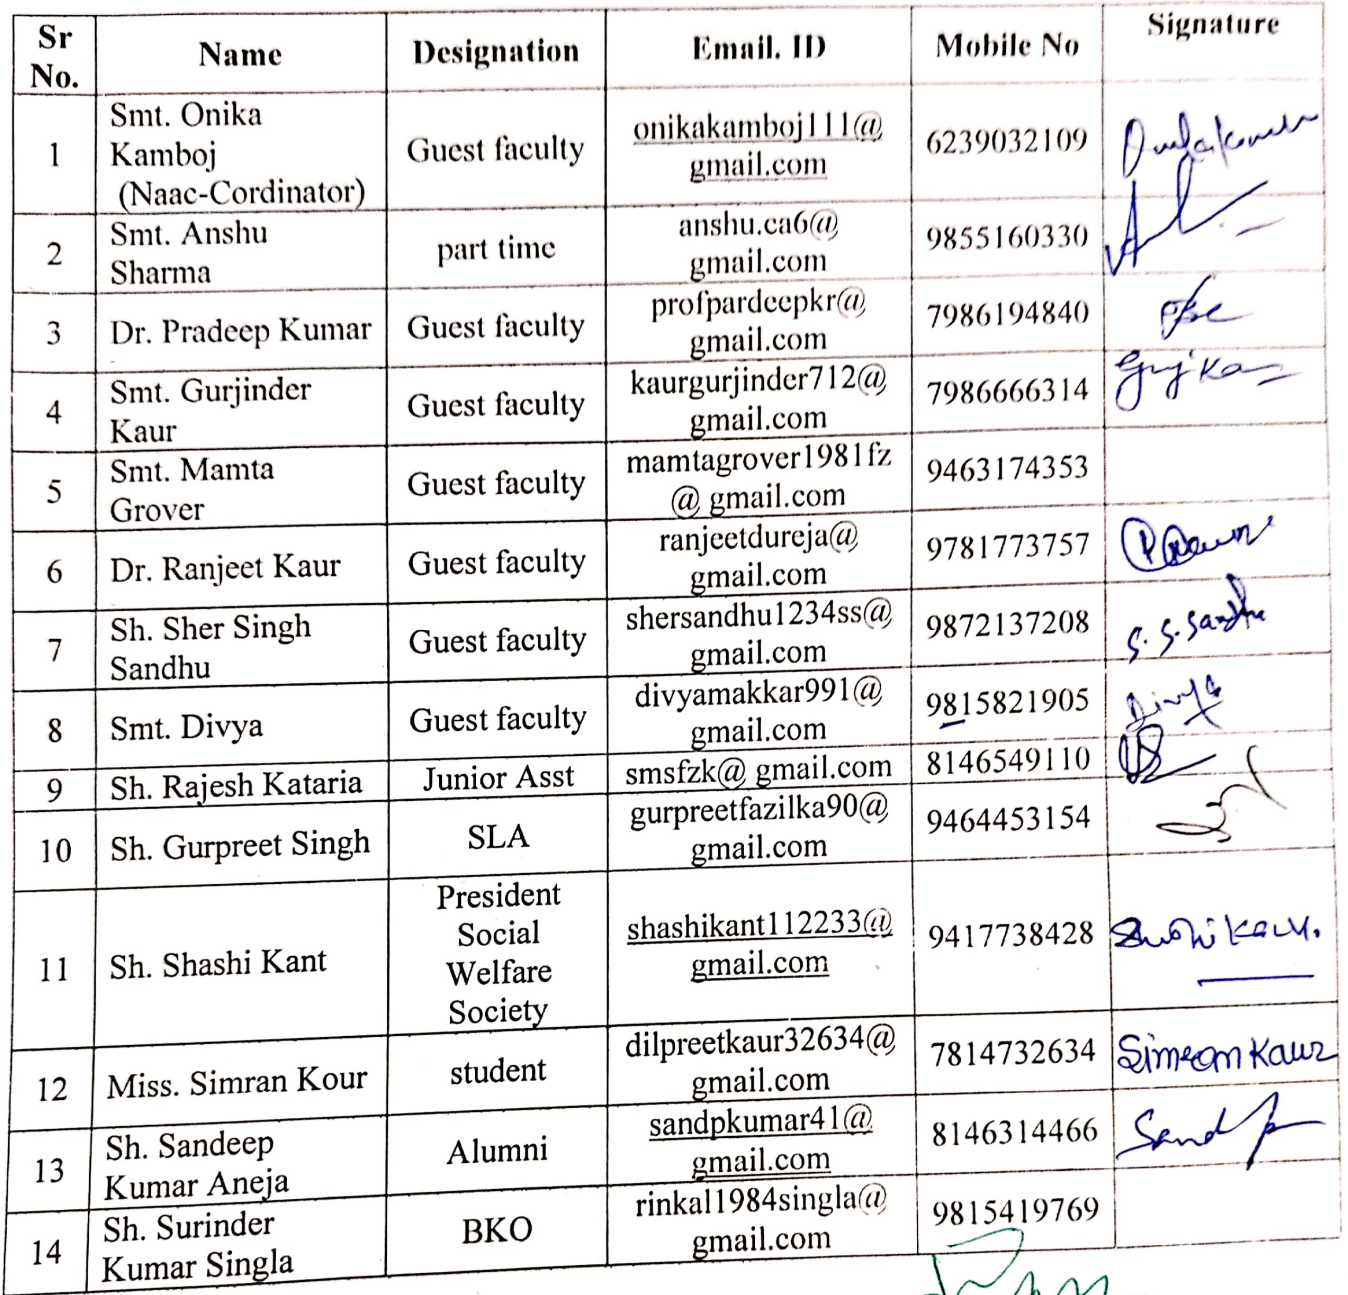 Sr No. Name Designation Email. ID Mobile No Signature
1 Smt. Onika Kamboj (Naac-Cordinator) Guest faculty onikakamboj111@ gmail.com 6239032109
2 Smt. Anshu Sharma part time anshu.ca6@ gmail.com 9855160330
3 Dr. Pradeep Kumar Guest faculty profpardeepkr@ gmail.com 7986194840
4 Smt. Gurjinder Kaur Guest faculty kaurgurjinder712@ gmail.com 7986666314
5 Smt. Mamta Grover Guest faculty mamtagrover1981fz @ gmail.com 9463174353
6 Dr. Ranjeet Kaur Guest faculty ranjeetdureja@ gmail.com 9781773757
7 Sh. Sher Singh Sandhu Guest faculty shersandhu1234ss@ gmail.com 9872137208 S. S. Sandhu
8 Smt. Divya Guest faculty divyamakkar991@ gmail.com 9815821905 Divya
9 Sh. Rajesh Kataria Junior Asst smsfzk@ gmail.com 8146549110
10 Sh. Gurpreet Singh SLA gurpreetfazilka90@ gmail.com 9464453154
11 Sh. Shashi Kant President Social Welfare Society shashikant112233@ gmail.com 9417738428
12 Miss. Simran Kour student dilpreetkaur32634@ gmail.com 7814732634 Simran Kaur
13 Sh. Sandeep Kumar Aneja Alumni sandpkumar41@ gmail.com 8146314466
14 Sh. Surinder Kumar Singla BKO rinkal1984singla@ gmail.com 9815419769